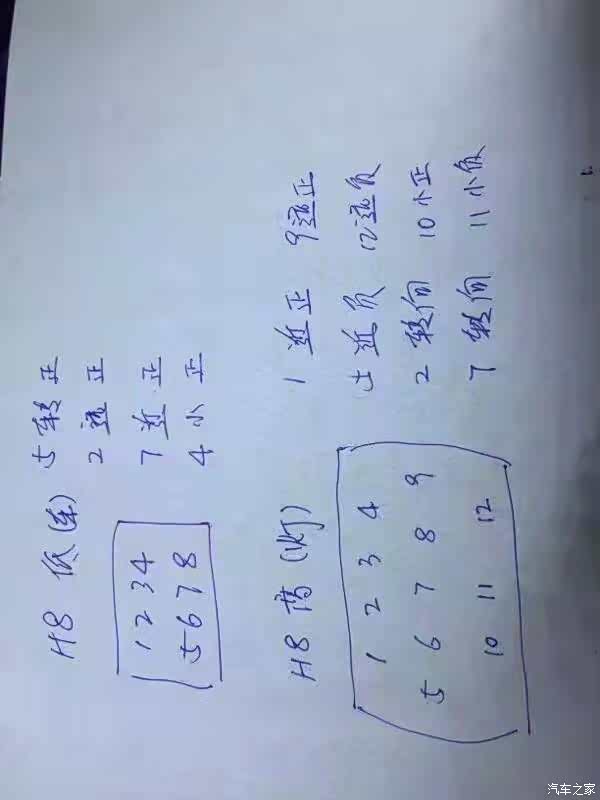 H8 低(车)
5 转 正
2 远 正
7 近 正
4 小 正
1 2 3 4
5 6 7 8
H8 高(灯)
1 近 正 9 远正
5 近 负 12 远负
2 转向 10 小正
7 转向 11 小负
1 2 3 4
5 6 7 8 9
10 11 12
汽车之家